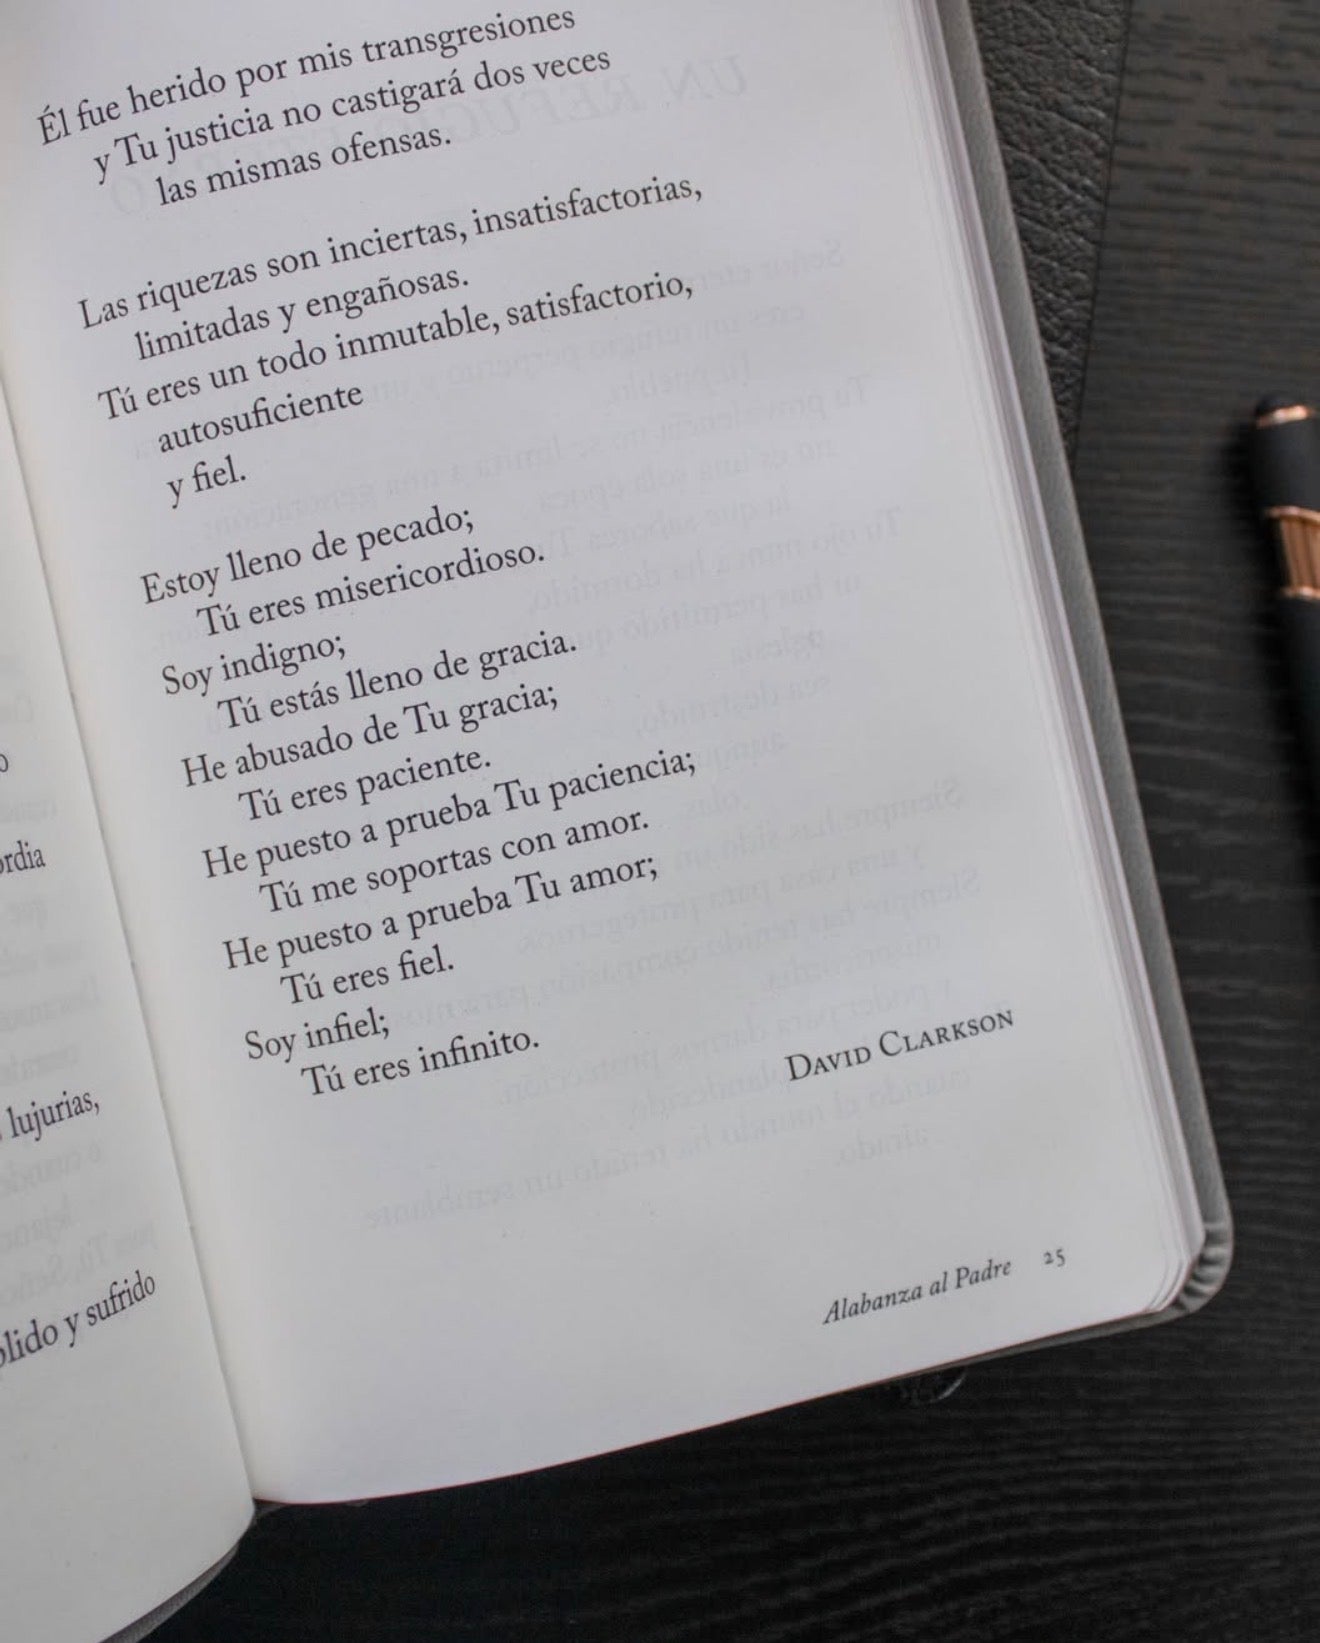 o
ordia
lujurias,
olido y sufrido
Él fue herido por mis transgresiones
y Tu justicia no castigará dos veces
las mismas ofensas.
Las riquezas son inciertas, insatisfactorias,
limitadas y engañosas.
Tú eres un todo inmutable, satisfactorio,
autosuficiente
y fiel.
Estoy lleno de pecado;
Tú eres misericordioso.
Soy indigno;
Tú estás lleno de gracia.
He abusado de Tu gracia;
Tú eres paciente.
He puesto a prueba Tu paciencia;
Tú me soportas con amor.
He puesto a prueba Tu amor;
Tú eres fiel.
Soy infiel;
Tú eres infinito.
DAVID CLARKSON
Alabanza al Padre 25